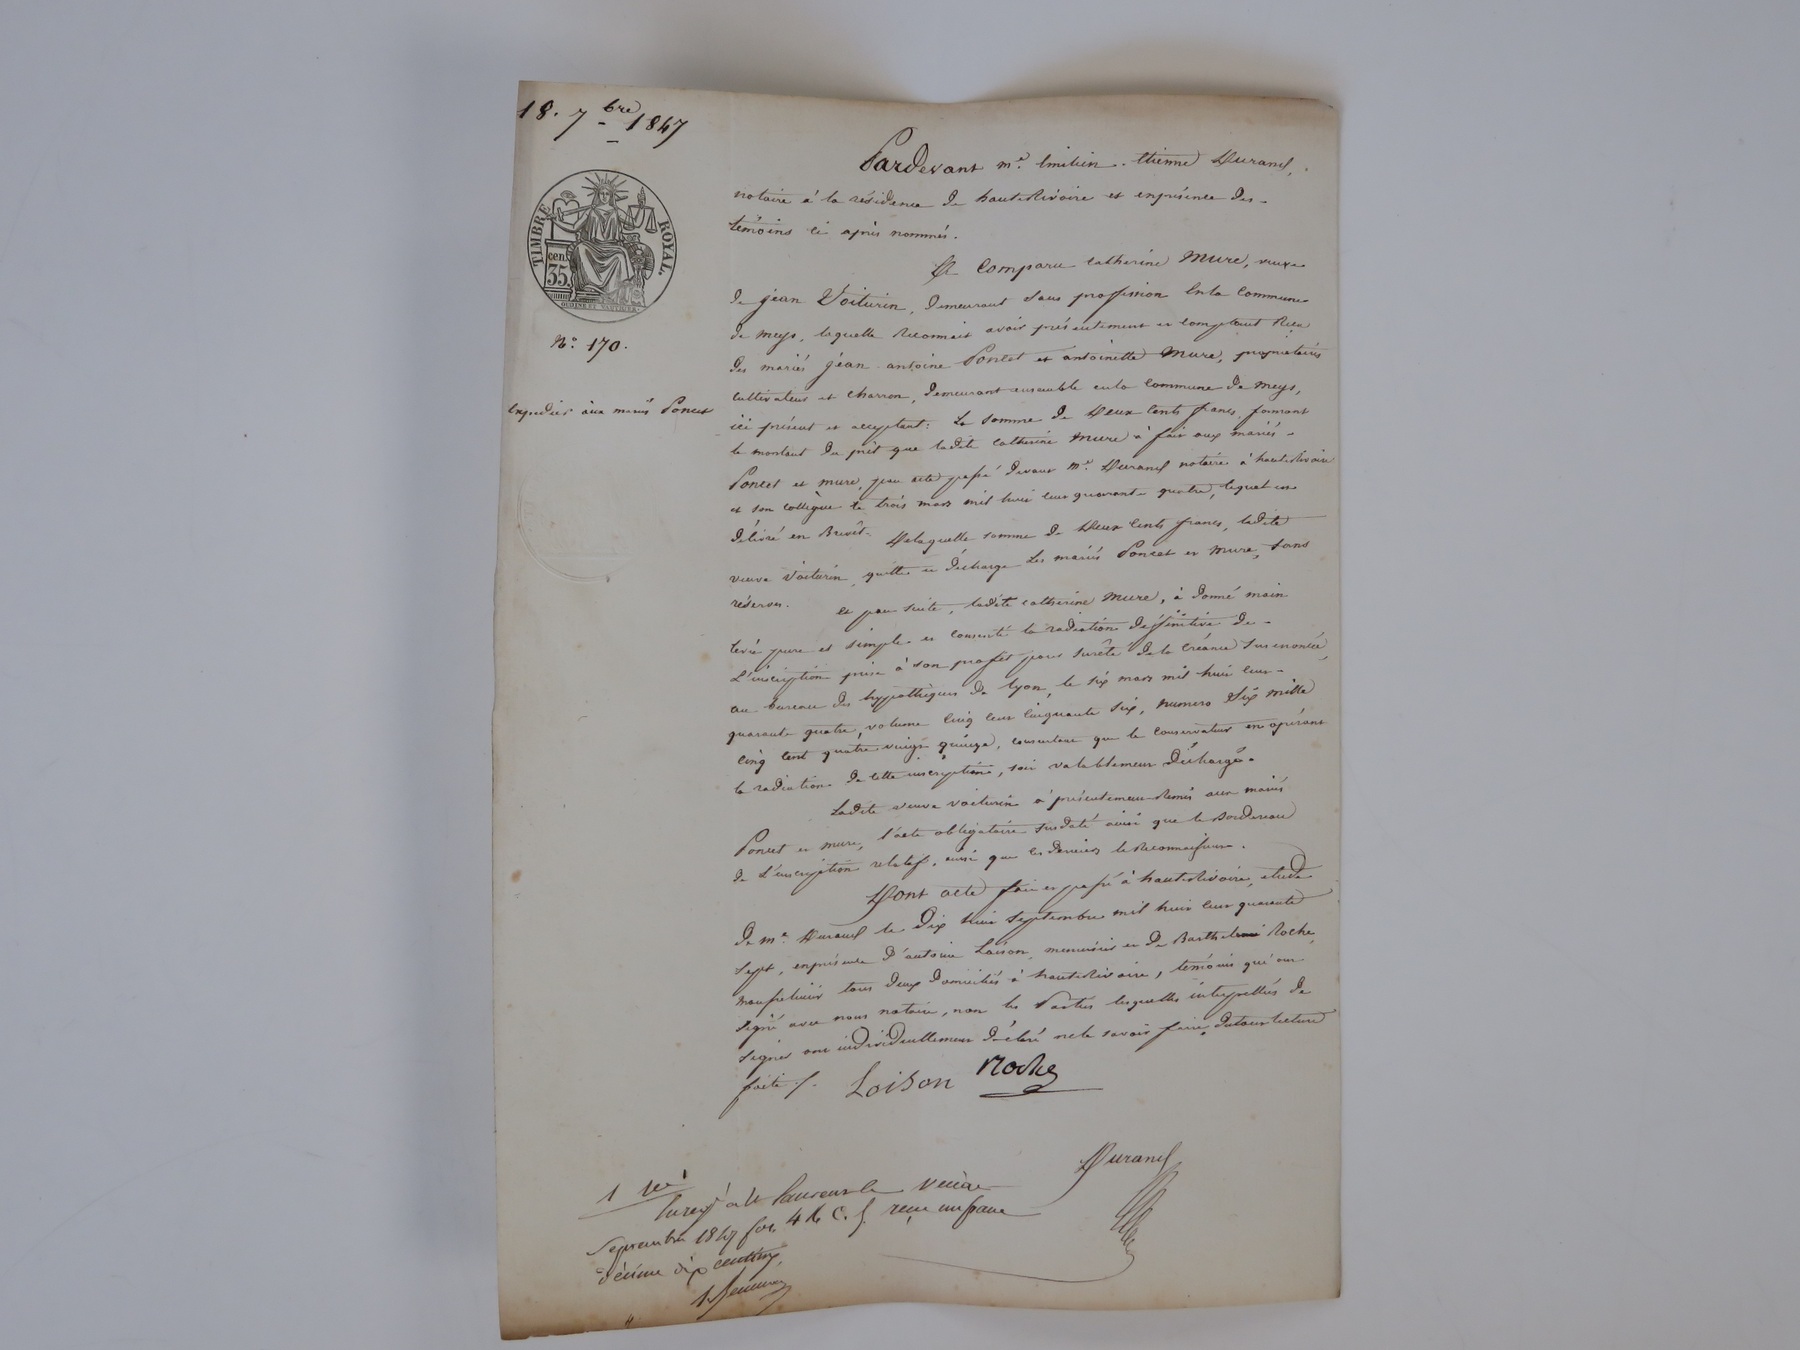 18. 7bre 1847
TIMBRE ROYAL.
cen. 35.
No. 170.
Expédiée aux mariés Poncet
Pardevant me. Emilien. Etienne Durand,
notaire à la résidence de hauterivoire et enprésence des
témoins ci après nommés.
A Comparu catherine Mure, veuve
de jean Voiturin, demeurant sans profession Enla Commune
de meys, laquelle Reconnait avoir présentement et comptant Reçu
des mariés jéan-antoine Poncet et antoinette Mure, propriétaires
cultivateur et charron, demeurant ensemble enla Commune de meys,
ici présent et acceptant: La somme de Deux Cents francs, formant
le montant du prêt que ladite catherine Mure à fait aux mariés
Poncet et mure, par acte passé devant me. Durand notaire à hauterivoire
et son collègue le trois mars mil huit cent quarante quatre, lequel est
délivré en Brevêt. Delaquelle somme de Deux Cents francs, ladite
veuve Voiturin, quitte et décharge Les mariés Poncet et Mure, sans
réserves. Et par suite, ladite catherine Mure, à donné main
levée pure et simple et consenti la radiation déffinitive de
L'inscription prise à son proffet pour surêté dela Créance susénoncée,
au bureau des hyppothèques de lyon, le six mars mil huit cent
quarante quatre, volume Cinq Cent Cinquante six, numero Six mille
Cinq Cent quatre vingt quinze, consentant que le conservateur en opérant
la radiation de cette inscription, soit valablement Déchargé.
Ladite veuve voiturin a présentement Remis aux mariés
Poncet et mure, l'acte obligatoire susdaté ainsi que le Bordereau
de L'inscription relatif, ainsi que les derniers le Reconnaissent.
Dont acte fait et passé à hauterivoire, étude
de me. Durand le Dix huit Septembre mil huit cent quarante
sept, enprésence D'antoine Loison, menuisier et de Barthelemi Roche,
tous deux domiciliés à hauterivoire, témoins qui ont
signé avec nous notaire, non les Parties lesquelles interpellées de
signer ont individuellement déclaré nele savoir faire, dutout lecture
faite ./.
Loison Roche
Durand
Enregé à St Laurent le
Septembre 1847 fo. C. reçu un franc
décime dix centimes